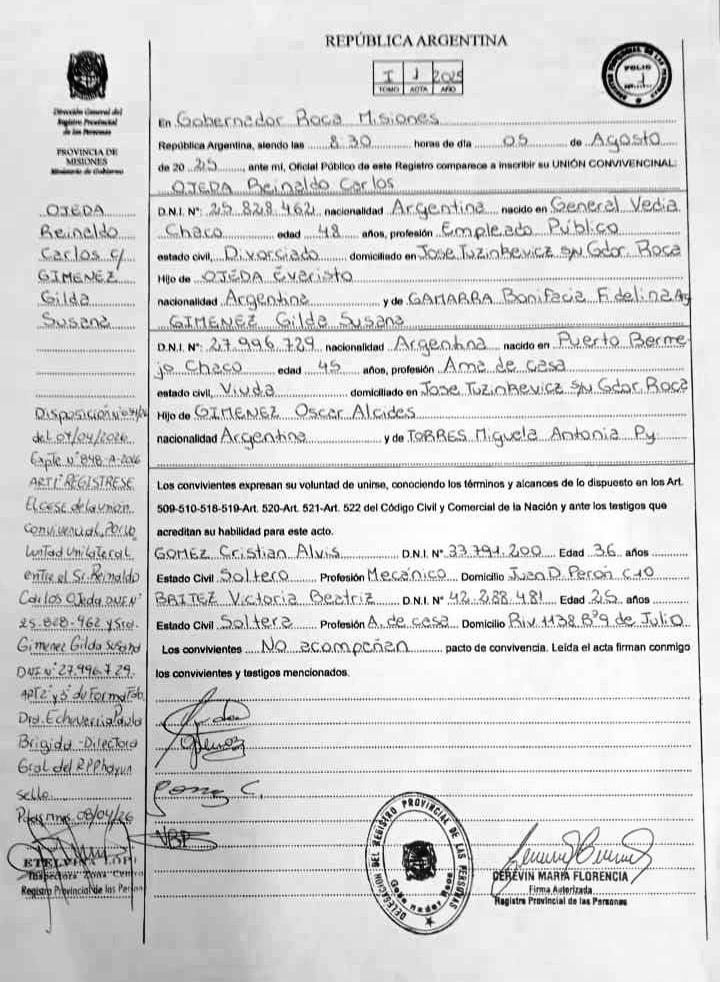 REPÚBLICA ARGENTINA
I 1 2025
TOMO ACTA AÑO
FOLIO
1
Dirección General del
Registro Provincial
de las Personas
PROVINCIA DE
MISIONES
Ministerio de Gobierno
En Gobernador Roca Misiones
República Argentina, siendo las 8:30 horas de día 05 de Agosto
de 20 25, ante mí, Oficial Público de este Registro comparece a inscribir su UNIÓN CONVIVENCINAL:
OJEDA Reinaldo Carlos
D.N.I. Nº: 25.828.462 nacionalidad Argentina nacido en General Vedia
Chaco edad 48 años, profesión Empleado Público
estado civil, Divorciado domiciliado en Jose Tuzinkevicz S/N Gdor. Roca
Hijo de OJEDA Evaristo
nacionalidad Argentina y de GAMARRA Bonifacia Fidelina Ag
GIMENEZ Gilda Susana
D.N.I. Nº: 27.996.729 nacionalidad Argentina nacido en Puerto Berme
jo Chaco edad 45 años, profesión Ama de casa
estado civil, Viuda domiciliado en Jose Tuzinkevicz S/N Gdor. Roca
Hijo de GIMENEZ Oscar Alcides
nacionalidad Argentina y de TORRES Miguela Antonia Py
Los convivientes expresan su voluntad de unirse, conociendo los términos y alcances de lo dispuesto en los Art.
509-510-518-519-Art. 520-Art. 521-Art. 522 del Código Civil y Comercial de la Nación y ante los testigos que
acreditan su habilidad para este acto.
GOMEZ Cristian Alvis D.N.I. Nº 33.791.200 Edad 36 años
Estado Civil Soltero Profesión Mecánico Domicilio Juan D. Perón C10
BRITEZ Victoria Beatriz D.N.I. Nº 42.288.481 Edad 25 años
Estado Civil Soltera Profesión A. de casa Domicilio Riv. 1138 Bº 9 de Julio
Los convivientes No acompañan pacto de convivencia. Leída el acta firman conmigo
los convivientes y testigos mencionados.
OJEDA
Reinaldo
Carlos c/
GIMENEZ
Gilda
Susana
Disposición
del 07/04/2026
Expte Nº 848-A-2026
ART 1º REGISTRESE
El CESE de la Unión
Convivencial, Por vo
luntad Unilateral
entre el Sr. Reinaldo
Carlos Ojeda DNI Nº
25-828-462 y Sra.
Gimenez Gilda Susana
DNI Nº 27.996.729.
ART 2º y 3º de Forma Fdo.
Dra. Echeverria Paula
Brigida - Directora
Gral del RPP hay un
sello.
Pdas mnes 08/04/26
Gomez C.
VBP
Inspectora Zona Centro
Registro Provincial de las Personas
DELEGACION DEL REGISTRO PROVINCIAL DE LAS PERSONAS
DEREVIN MARIA FLORENCIA
Firma Autorizada
Registro Provincial de las Personas